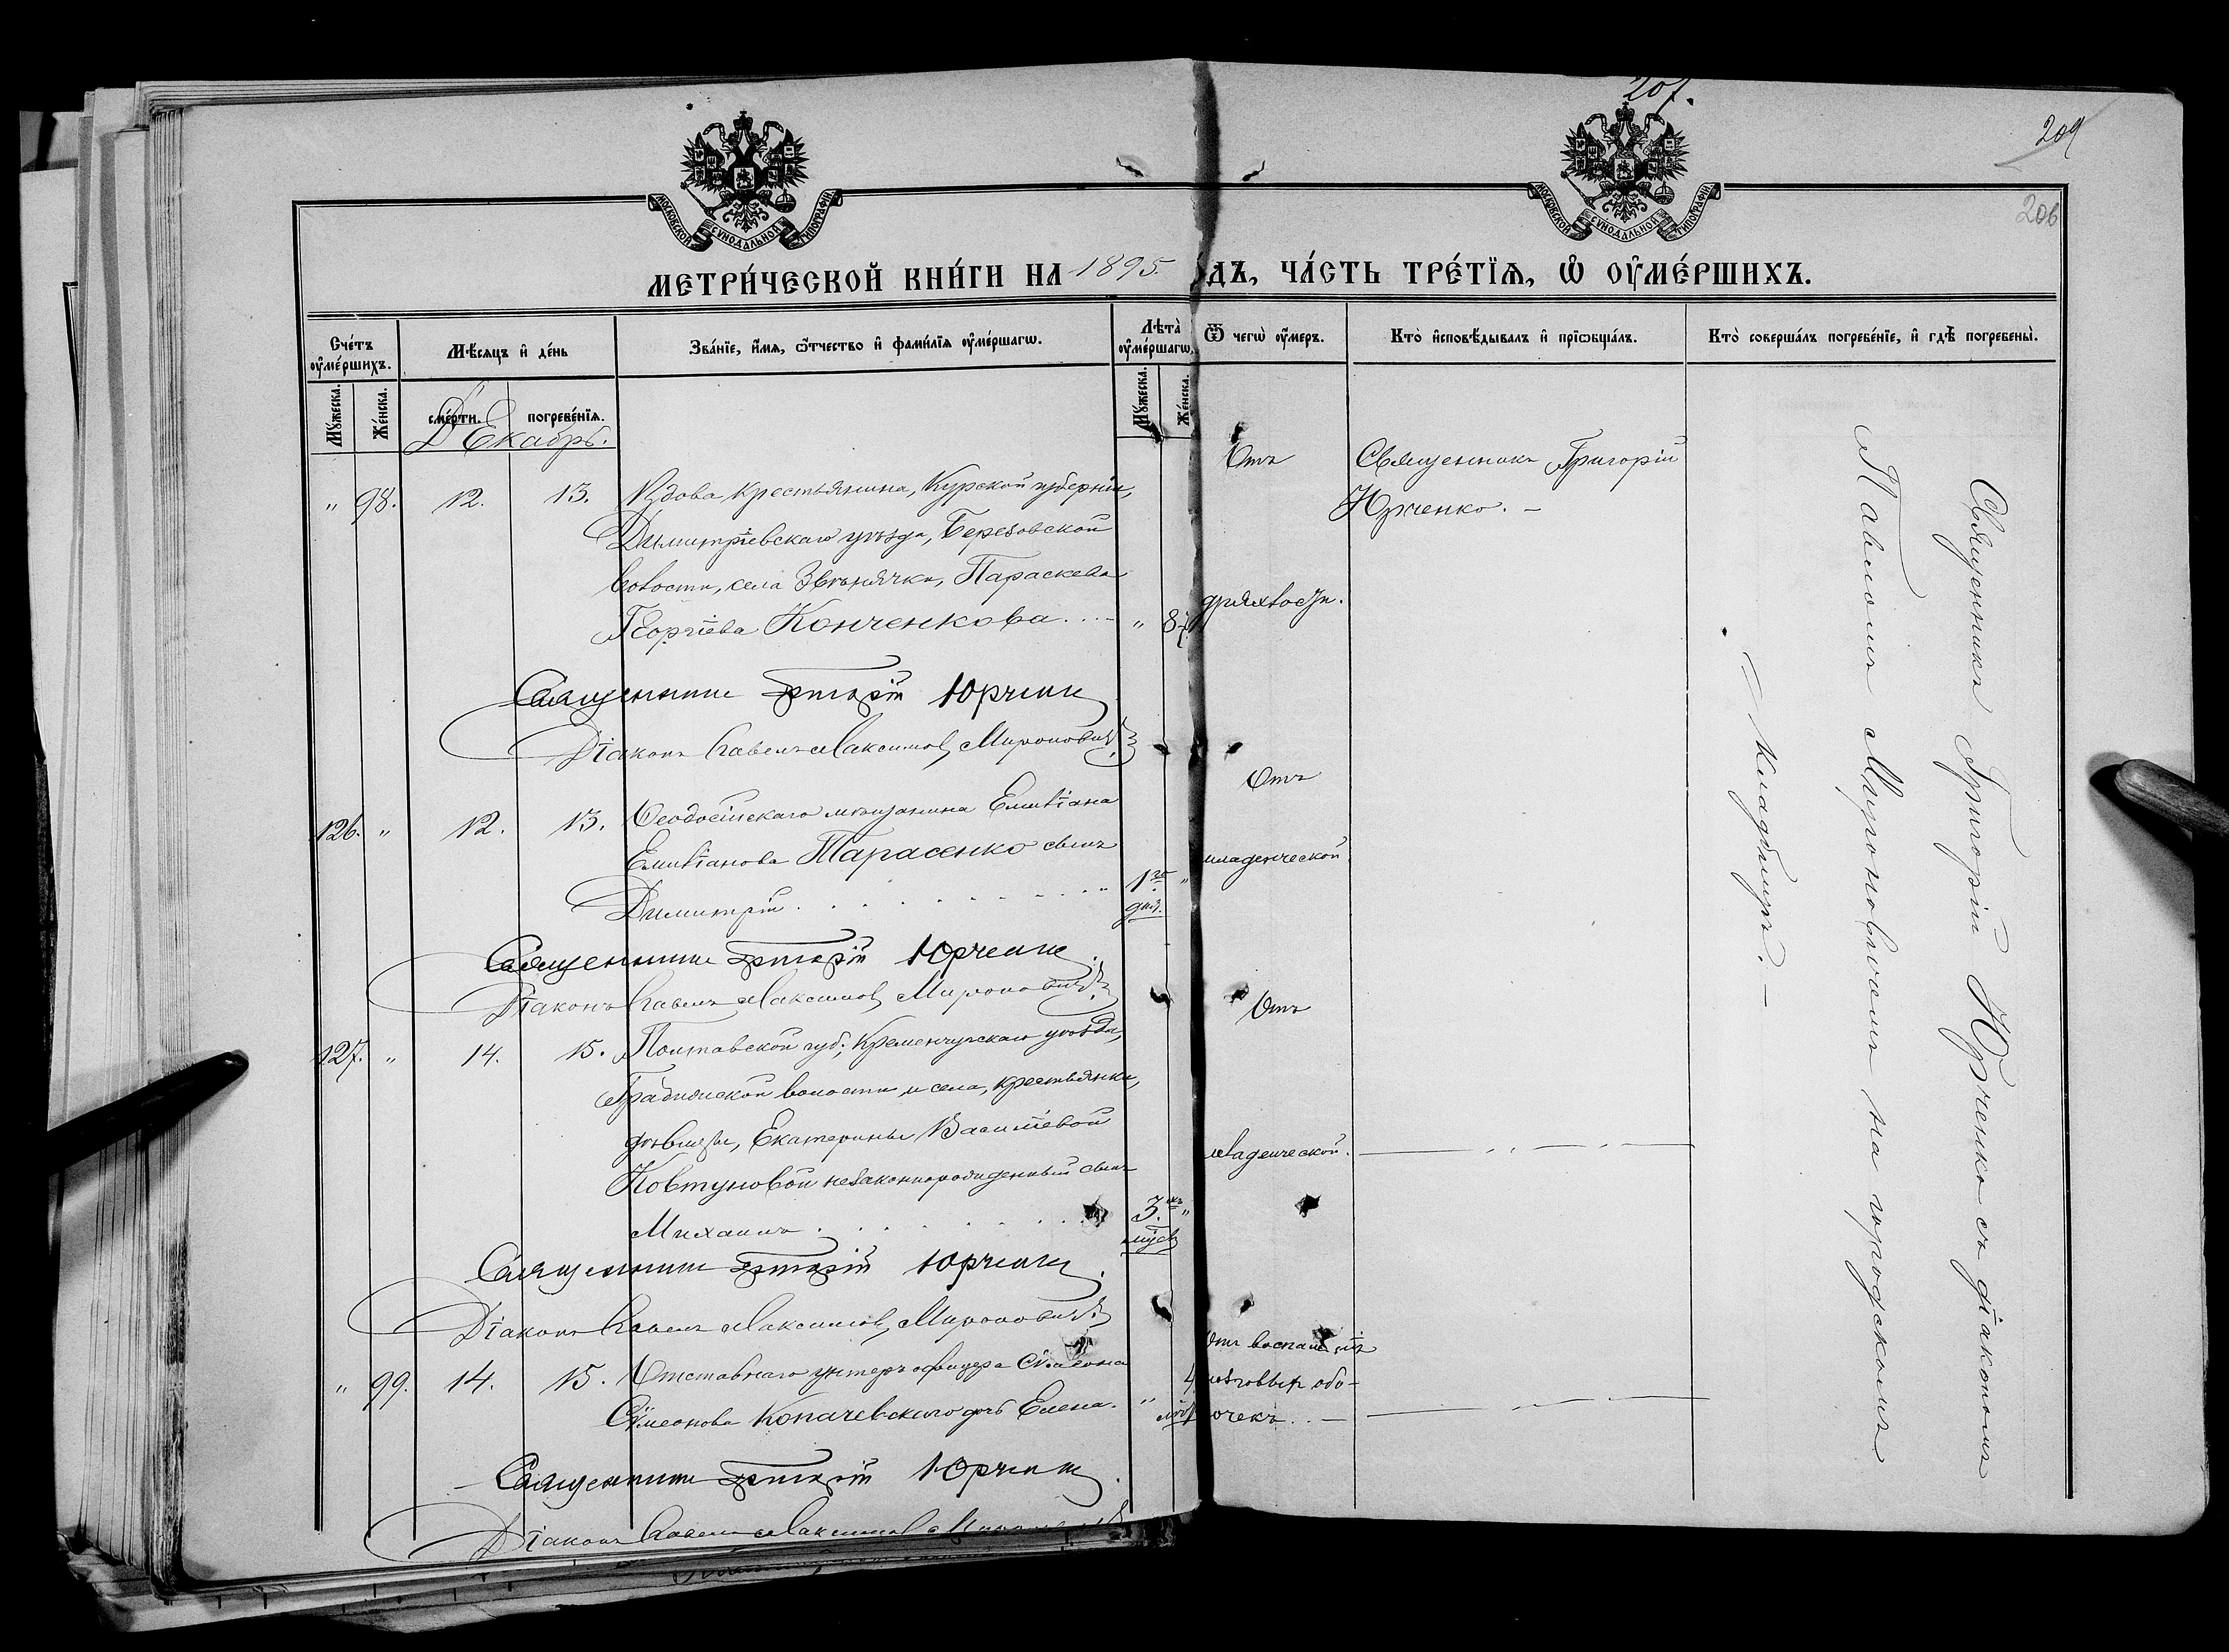 207.
209
206
МОСКОВСКОЙ СУНОДАЛЬНОЙ ТИПОГРАФІИ
МОСКОВСКОЙ СУНОДАЛЬНОЙ ТИПОГРАФІИ
МЕТРИ́ЧЕСКОЙ КНИ́ГИ НА 1895. ДЪ, ЧА́СТЬ ТРЕ́ТЇѦ, Ѡ҆ ОУ҆МЕ́РШИХЪ.
Сче́тъ оу҆ме́ршихъ.
Мꙋ́жеска.
Же́нска.
Мѣ́сѧцъ и҆ де́нь
сме́рти.
погребе́нїѧ.
Зва́нїе, и҆́мѧ, ѻ҆́тчество и҆ фами́лїѧ оу҆ме́ршагѡ.
Лѣта̀ оу҆ме́ршагѡ.
Мꙋ́жеска.
Же́нска.
Ѿ чегѡ̀ оу҆́меръ.
Кто̀ и҆сповѣ́дывалъ и҆ прїѡбща́лъ.
Кто̀ соверша́лъ погребе́нїе, и҆ гдѣ̀ погребены̀.
Декабрь.
" 98. 12. 13. Вдова крестьянина, Курской губерніи,
Димитріевскаго уѣзда, Березовской
волости, села Звѣнячки, Параскева
Георгіева Конченкова . . . "
Отъ
дряхлости.
Священникъ Григорій
Юрченко. –
Священникъ Григорій Юрченко
Діаконъ Павелъ Максимов. Мироновичъ
126. " 12. 13. Ѳеодосійскаго мѣщанина Емиліана
Емиліанова Тарасенко сынъ
Димитрій . . . . . . . . . 1 "
дня.
Отъ
младенческой
Священникъ Григорій Юрченко.
Діаконъ Павелъ Максимов. Мироновичъ.
127. " 14. 15. Полтавской губ., Кременчугскаго уѣзда,
Градижской волости и села, крестьянки,
дѣвицы, Екатерины Василіевой
Ковтуновой незаконнорожденный сынъ
Михаилъ . . . . . . . . 3.хъ "
мѣсяц
Отъ
младенческой.
Священникъ Григорій Юрченко.
Діаконъ Павелъ Максимов. Мироновичъ.
" 99. 14. 15. Отставнаго унтеръ-офицера Сѵмеона
Сѵмеонова Копачевскаго дочь Елена. " 4
лѣт
Отъ воспаленія
мозговыхъ обо-
лочекъ. . –
Священникъ Григорій Юрченко.
Діаконъ Павелъ Максимов
Священникъ Григорій Юрченко съ діакономъ
Павломъ Мироновичомъ на городскомъ
кладбищѣ. –